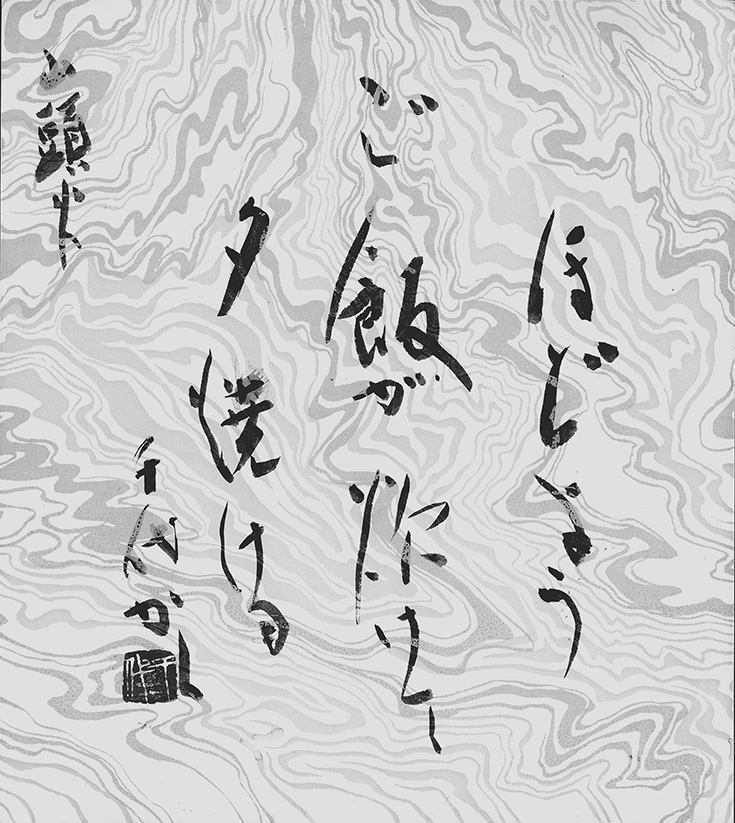 ほどよう
ご飯が炊けて
夕焼ける
千代か
山頭火